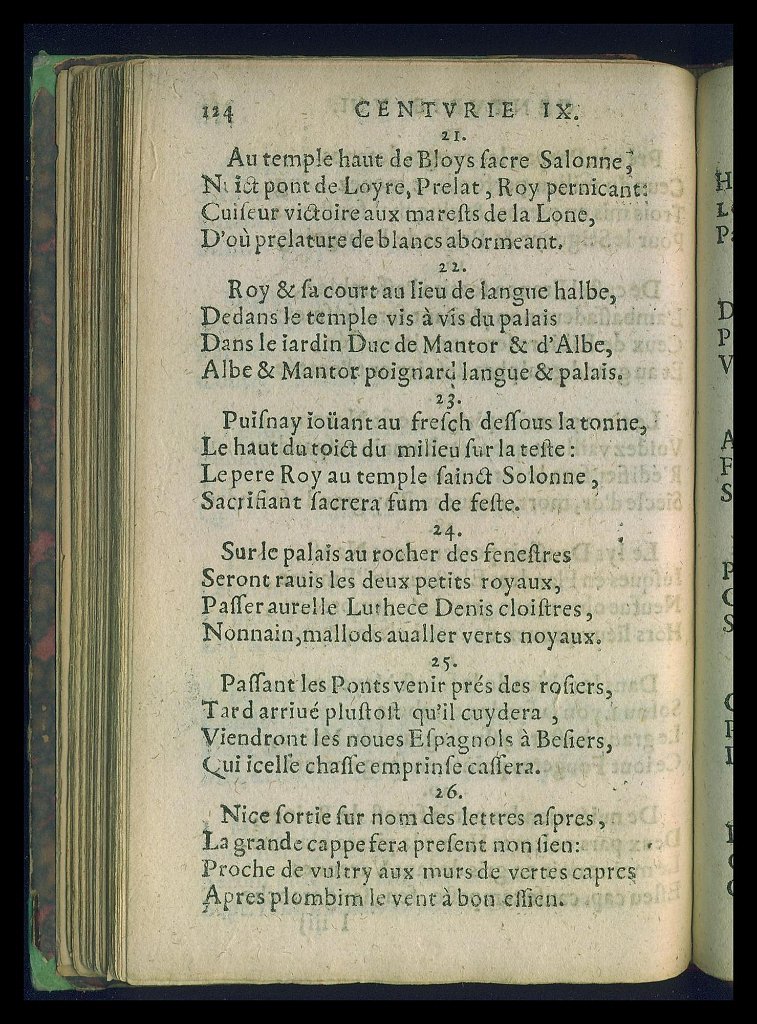 124 CENTVRIE IX.
21.
Au temple haut de Bloys ſacre Salonne,
Nuict pont de Loyre, Prelat, Roy pernicant:
Cuiſeur victoire aux mareſts de la Lone,
D'où prelature de blancs abormeant.
22.
Roy & ſa court au lieu de langue halbe,
Dedans le temple vis à vis du palais
Dans le iardin Duc de Mantor & d'Albe,
Albe & Mantor poignard langue & palais.
23.
Puiſnay ioüant au freſch deſſous la tonne,
Le haut du toict du milieu ſur la teſte:
Le pere Roy au temple ſainct Solonne,
Sacrifiant ſacrera fum de feſte.
24.
Sur le palais au rocher des feneſtres
Seront rauis les deux petits royaux,
Paſſer aurelle Luthece Denis cloiſtres,
Nonnain, mallods aualler verts noyaux.
25.
Paſſant les Ponts venir prés des roſiers,
Tard arriué pluſtoſt qu'il cuydera,
Viendront les noues Eſpagnols à Beſiers,
Qui icelle chaſſe emprinſe caſſera.
26.
Nice ſortie ſur nom des lettres aſpres,
La grande cappe fera preſent non ſien:
Proche de vultry aux murs de vertes capres
Apres plombim le vent à bon eſſien.